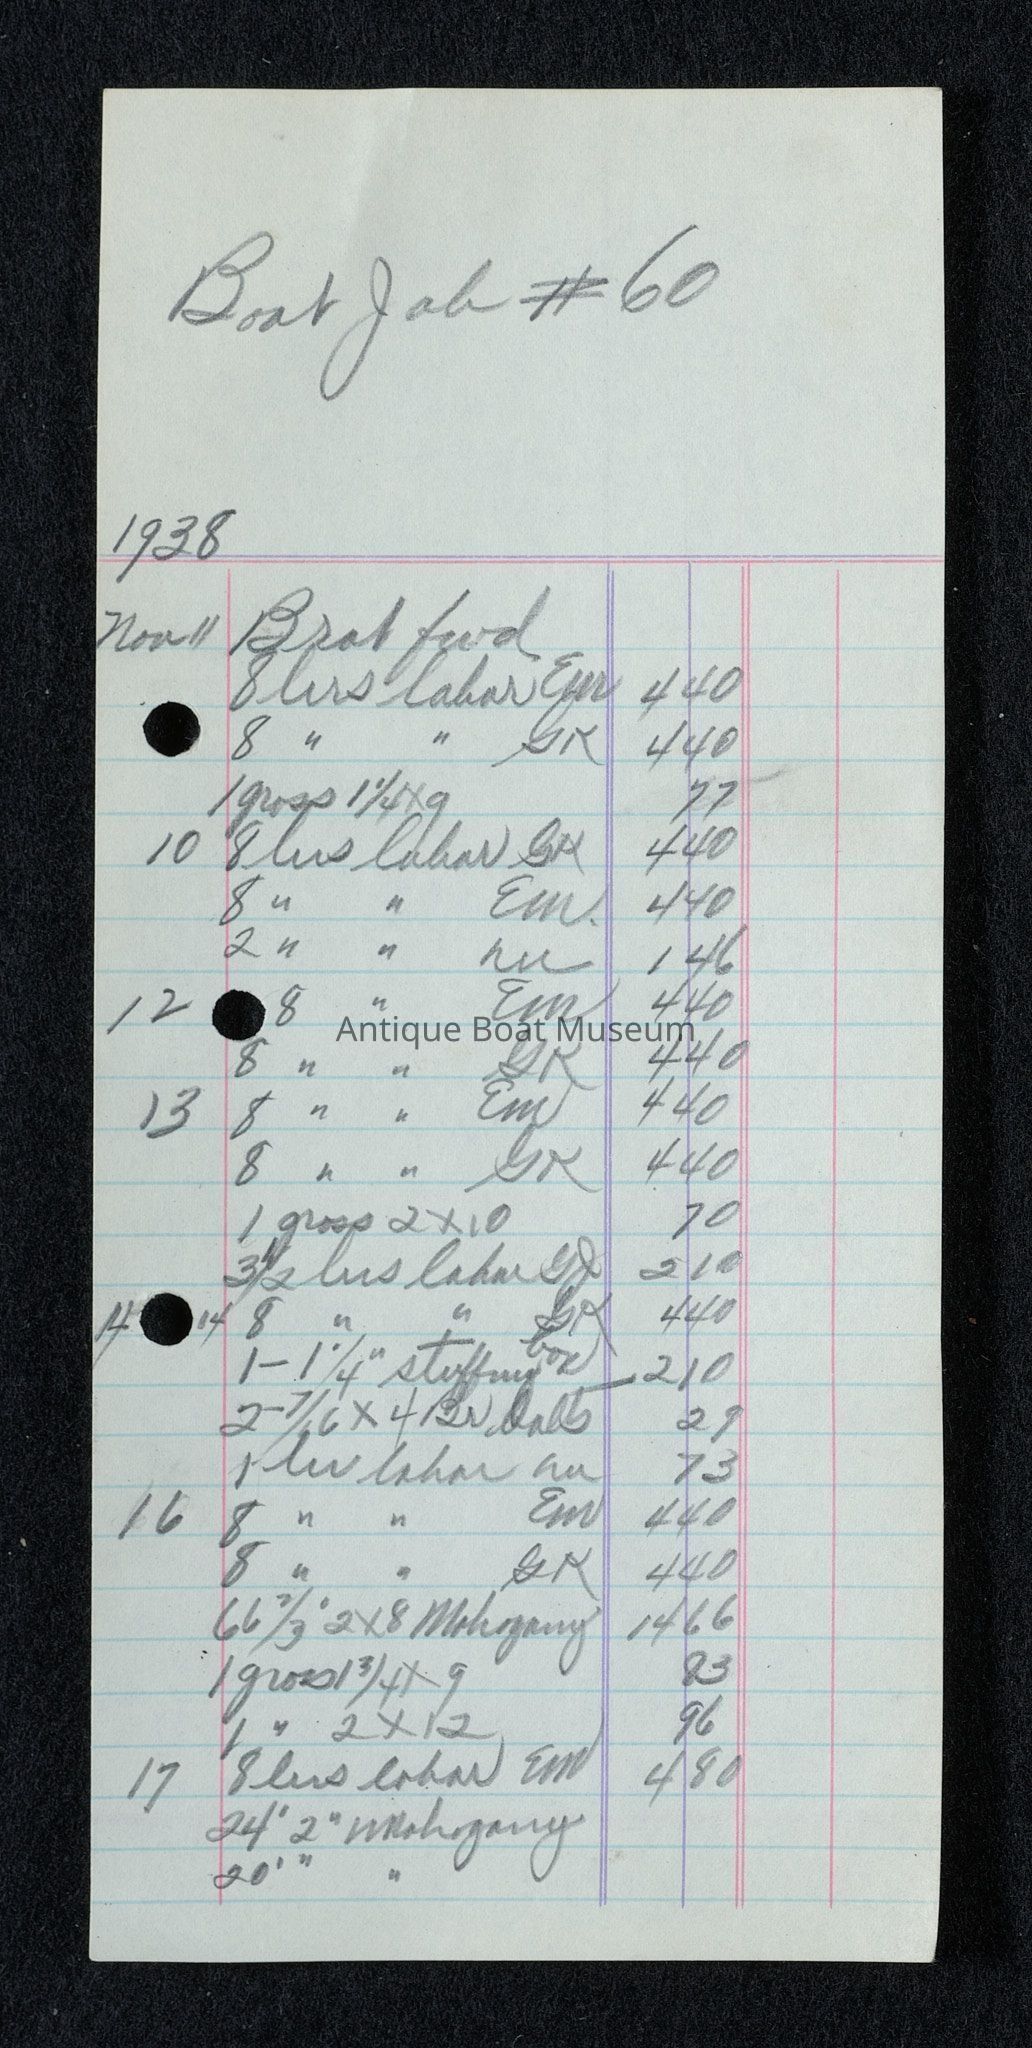 Boat Job # 60
1938
Nov 11 Brot fwd
8 hrs labor Em 4 40
8 " " GK 4 40
1 gross 1 1/4 X 9 77
10 8 hrs labor GK 4 40
8 " " Em. 4 40
2 " " 1 46
12 8 " Em 4 40
Antique Boat Museum
8 " " GK 4 40
13 8 " " Em 4 40
8 " " GK 4 40
1 gross 2 X 10 70
3 1/2 hrs labor GJ 2 10
14 14 8 " " GK 4 40
1 - 1 1/4" stuffing box 2 10
2 - 7/16 X 4 Br bolts 29
1 hr labor 73
16 8 " " Em 4 40
8 " " GK 4 40
66 2/3' 2 X 8 Mahogany 14 66
1 gross 1 3/4 X 9 83
1 " 2 X 12 96
17 8 hrs labor Em 4 80
24' 2" Mahogany
20' " "